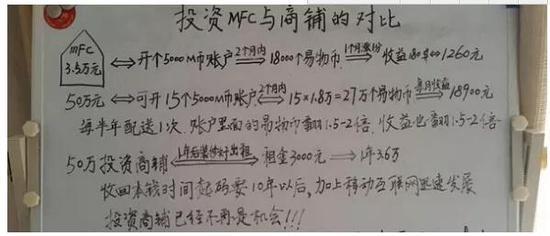 投资MFC与商铺的对比
MFC
3.5万元 ⇔ 开个5000M币账户 2个月内 18000个易物币 1个月涨1分 收益180$⇔1260元
50万元 ⇔ 可开15个5000M币账户 2个月内 15×1.8万=27万个易物币 每月收益 18900元
每半年配送1次 账户里面的易物币翻1.5-2倍 收益也翻1.5-2倍
50万投资商铺 1年后装修好出租 租金3000元 ⇒ 1年3.6万
收回本钱时间起码要10年以后,加上移动互联网迅速发展
投资商铺已经不再是机会!!!